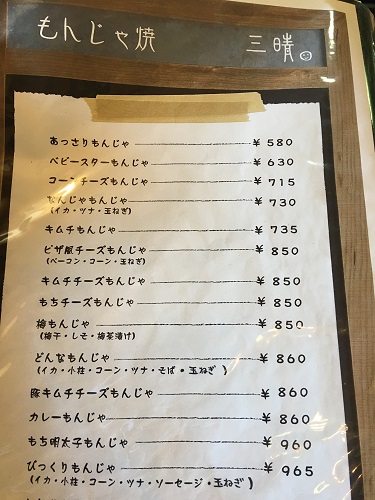 もんじゃ焼 三晴
あっさりもんじゃ ¥ 580
ベビースターもんじゃ ¥ 630
コーンチーズもんじゃ ¥ 715
なんじゃもんじゃ ¥ 730
(イカ・ツナ・玉ねぎ)
キムチもんじゃ ¥ 735
ピザ風チーズもんじゃ ¥ 850
(ベーコン・コーン・玉ねぎ)
キムチチーズもんじゃ ¥ 850
もちチーズもんじゃ ¥ 850
梅もんじゃ ¥ 850
(梅干・しそ・梅茶漬け)
どんなもんじゃ ¥ 860
(イカ・小柱・コーン・ツナ・そば・玉ねぎ)
豚キムチチーズもんじゃ ¥ 860
カレーもんじゃ ¥ 860
もち明太子もんじゃ ¥ 960
びっくりもんじゃ ¥ 965
(イカ・小柱・コーン・ツナ・ソーセージ・玉ねぎ)